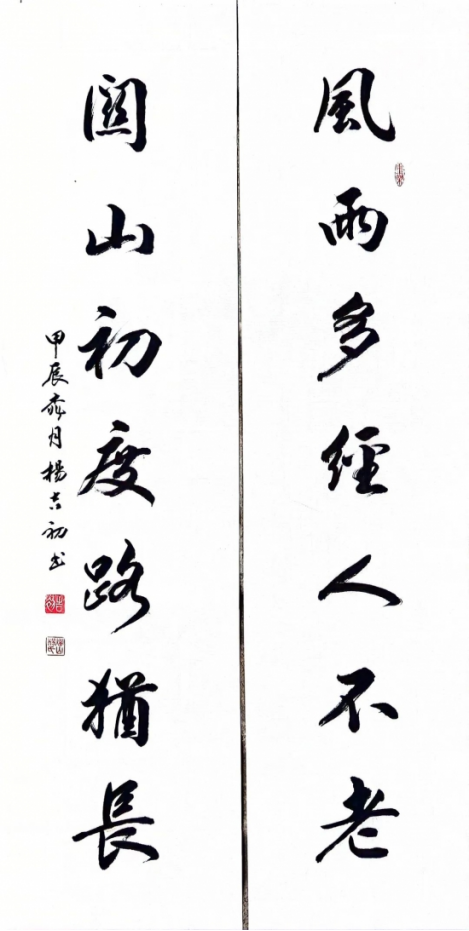 風雨多經人不老
關山初度路猶長
甲辰齊月楊吉初书